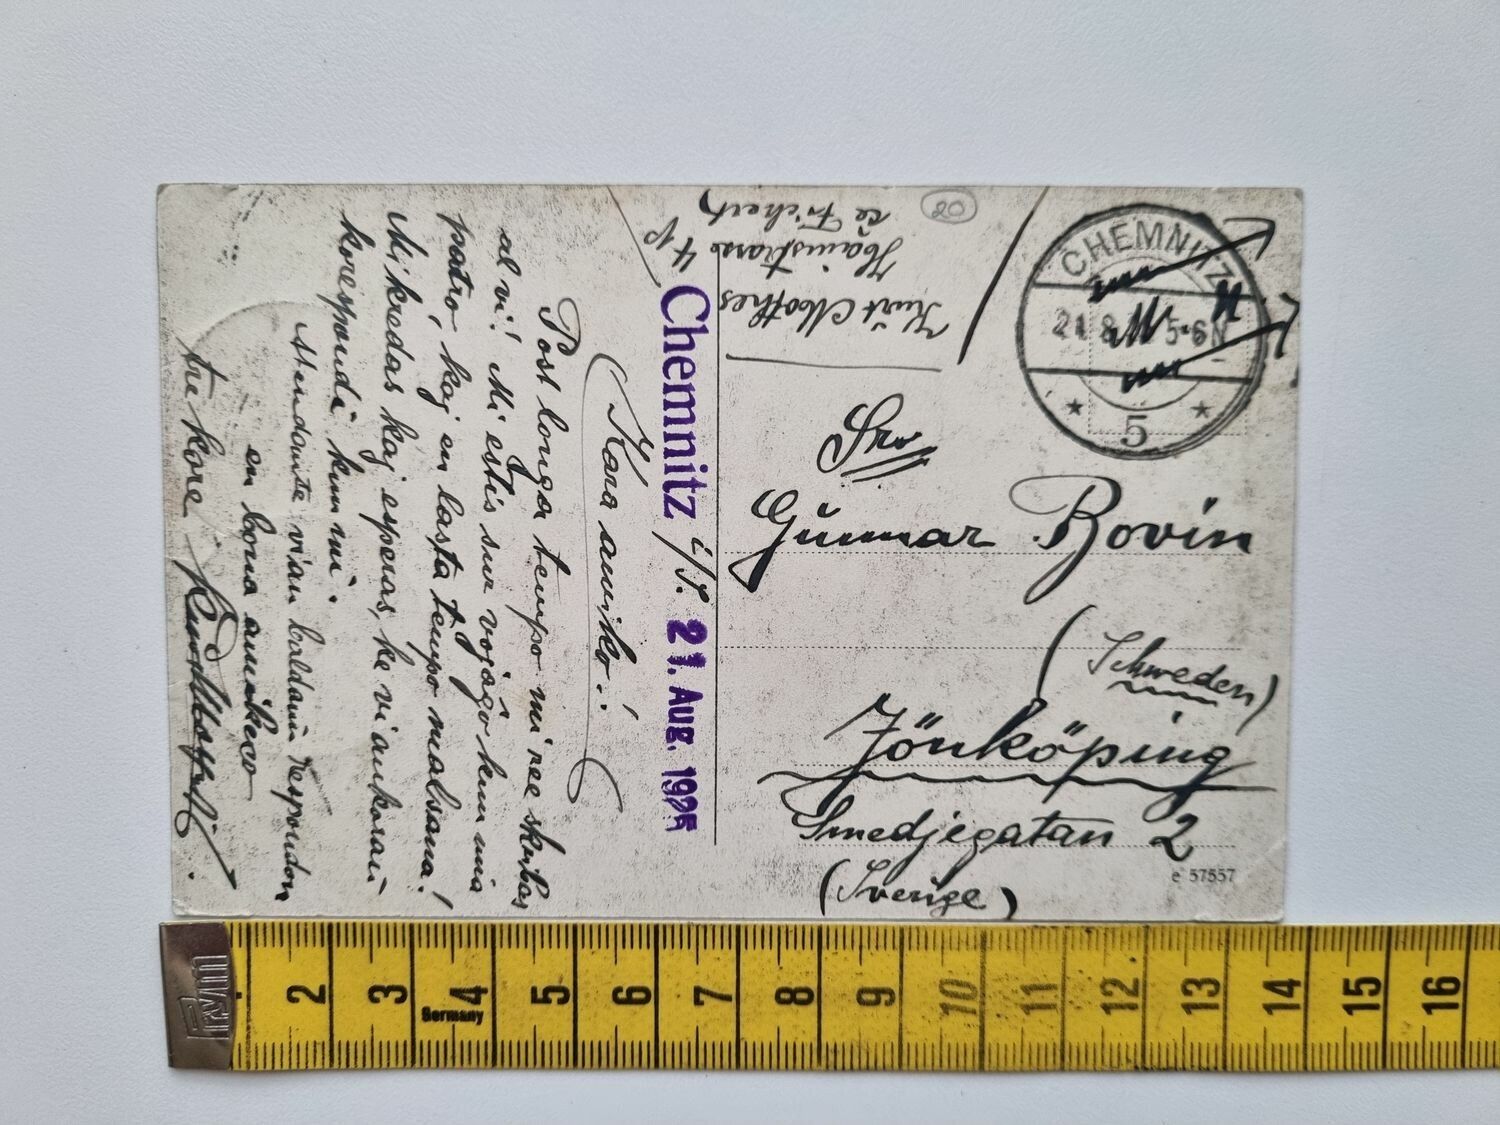 Chemnitz i/S. 21. Aug. 1925
Kara amiko!
Post longa tempo mi ree skribas
al vi! Mi estis sur vojaĝo kun mia
patro, kaj en lasta tempo malsana!
Mi kredas kaj esperas, ke vi ankoraŭ
korespondi kun mi.
Atendante vian baldaŭ respondon
en bona amikeco
tre kore
Kurt Mothes
Hainstrasse 4 p
20
CHEMNITZ
21.8. 5-6N
5
Sro
Gunnar Bovin
(Schweden)
Jönköping
Smedjegatan 2
(Sverige)
e 57557
2 3 4 5 6 7 8 9 10 11 12 13 14 15 16
Germany